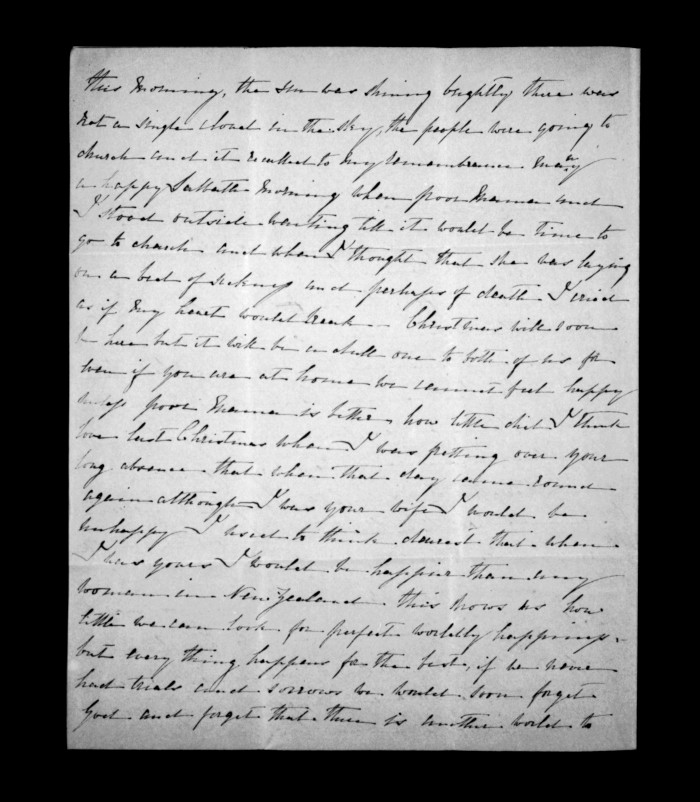 this morning, the sun was shining brightly there was
not a single cloud in the sky, the people were going to
church and it recalled to my remembrance many
a happy Sabbath morning when poor Mamma and
I stood outside waiting till it would be time to
go to church and when I thought that she was laying
on a bed of sickness and perhaps of death I cried
as if my heart would break - Christmas will soon
be here but it will be a dull one to both of us for
even if you are at home we cannot feel happy
unless poor Mamma is better how little did I think
love last Christmas when I was fretting over your
long absence that when that day came round
again although I was your wife I would be
unhappy I used to think dearest that when
I was yours I would be happier than any
woman in New Zealand this shows us how
little we can look for perfect worldly happiness -
but every thing happens for the best, if we never
had trials and sorrows we would soon forget
God and forget that there is another world to